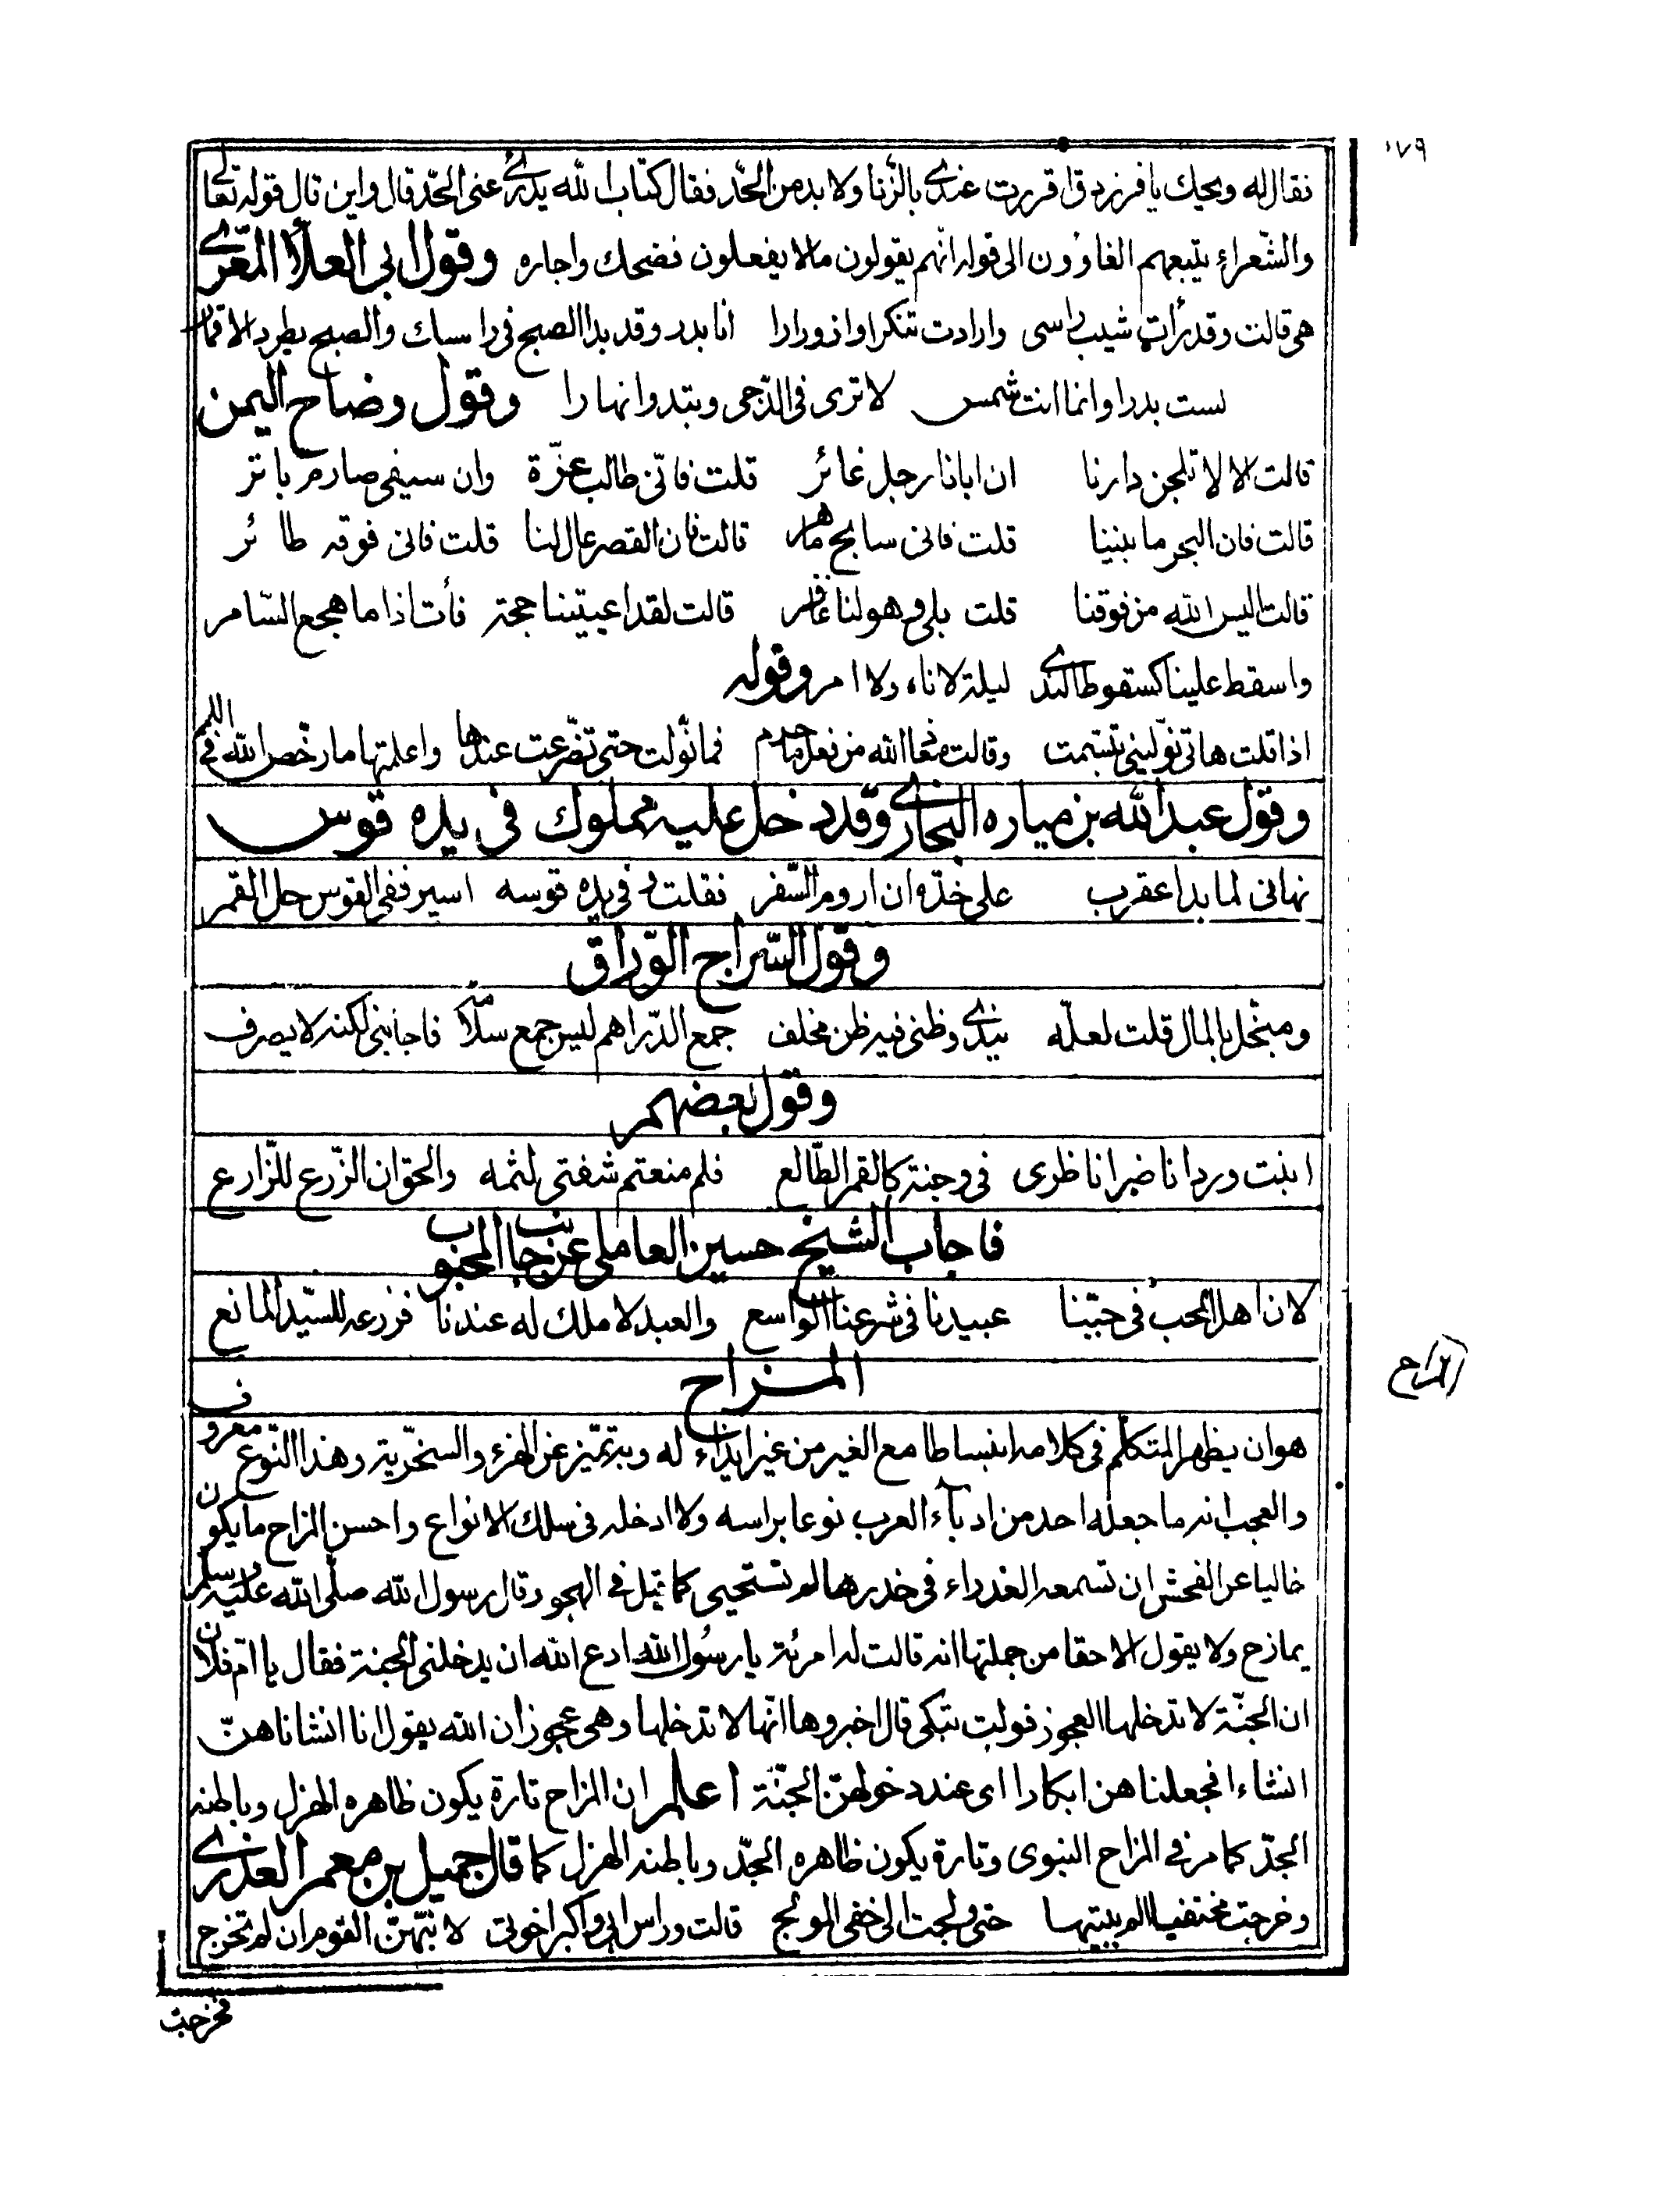 ١٧٩
فقال له ويحك يا فرزدق اقررت عندى بالزّنا ولا بد من الحّد فقال كتاب الله يدرئ عنى الحّد قال واين قال قوله تعالى
والشّعراء يتبعهم الغاوٗون الى قوله انّهم يقولون مالا يفعلون فضحك واجاره وقول ابى العلأ المعّرى
هى قالت وقد رأت شيب راسى وارادت تنكرا وازورارا انا بدر وقد بدا الصبح فى راسك والصبح يطرد الاقمار
لست بدرا وانما انت شمس لا ترى فى الدّجى وتبدو انهارا وقول وضاح اليمن
قالت الا لا تلجن دارنا ان ابانا رجل غائر قلت فانّى طالب عزّة وان سيفى صارم باتر
قالت فان البحر ما بيننا قلت فانى سابح ماهر قالت فان القصر عال لنا قلت فانى فوقه طائر
قالت اليس الله من فوقنا قلت بلى وهو لنا غافر قالت لقد اعييتنا حجة فأت اذا ما هجع السّامر
واسقط علينا كسقوط الندى ليلة لا ناه ولا امر وقوله
اذا قلت هاتى نوّلينى تبسّمت وقالت معا الله من فعل ما حرم فما نوّلت حتى تضّرعت عندها واعلمتها ما رخّص الله فى اللمم
وقول عبد الله بن مياره النجارى وقد دخل عليه مملوك فى يده قوس
نهانى لما بدا عقرب على خدّه ان اروم السّفر فقلت وفى يده قوسه اسير ففى القوس حل القمر
وقول السّراج الوّراق
ومبخّل بالمال قلت لعلّه يندى وظنى فيه ظن مخلف جمع الدّراهم ليس جمع سلامة فاجابنى لكنه لا يصرف
وقول بعضهم
انبت وردا ناضرا ناظرى فى وجنة كالقمر الطّالع فلم منعتم شفتى لثمه والحق ان الزّرع للّزارع
فاجاب الشيخ حسين العاملى عن جانب المحبوب
لان اهل الحب فى حبّنا عبيدنا فى شرعنا الواسع والعبد لا ملك له عندنا فزرعه للسّيد المانع
المزاح
المزاح
هو ان يظهر المتكلّم فى كلامه انبساطا مع الغير من غير ايذاء له وبه تميّز عن الهزء والسخّرية وهذا النّوع معروف
والعجب انه ما جعله احد من ادبآء العرب نوعا براسه ولا ادخله فى سلك الانواع واحسن المزاح ما يكون
خاليا عن الفحش ان تسمعه العذراء فى خدرها لم تستحيى كما قيل فى الهجو وقال رسول الله صلّى الله عليه وسلم
يمازح ولا يقول الا حقا من جملتها انه قالت له امرئة يا رسول الله ادع الله ان يدخلنى الجنة فقال يا امّ فلان
ان الجنّة لا تدخلها العجوز فولت تبكى قال اخبروها انّها لا تدخلها وهى عجوز ان الله يقول انا انشاناهنّ
انشاء انجعلناهن ابكارا اى عند دخولهنّ الجنّة اعلم ان المزاح تارة يكون ظاهره الهزل وباطنه
الجدّ كما مر فى المزاح النبوى وتارة يكون ظاهره الجدّ وباطنه الهزل كما قال جميل بن معمر العذرى
وخرجت مختفيا الم ببيتها حتى ولجت الى خفى المولج قالت وراس ابى واكبر اخوتى لا نبّهنّ القوم ان لم تخرج
فخرجت